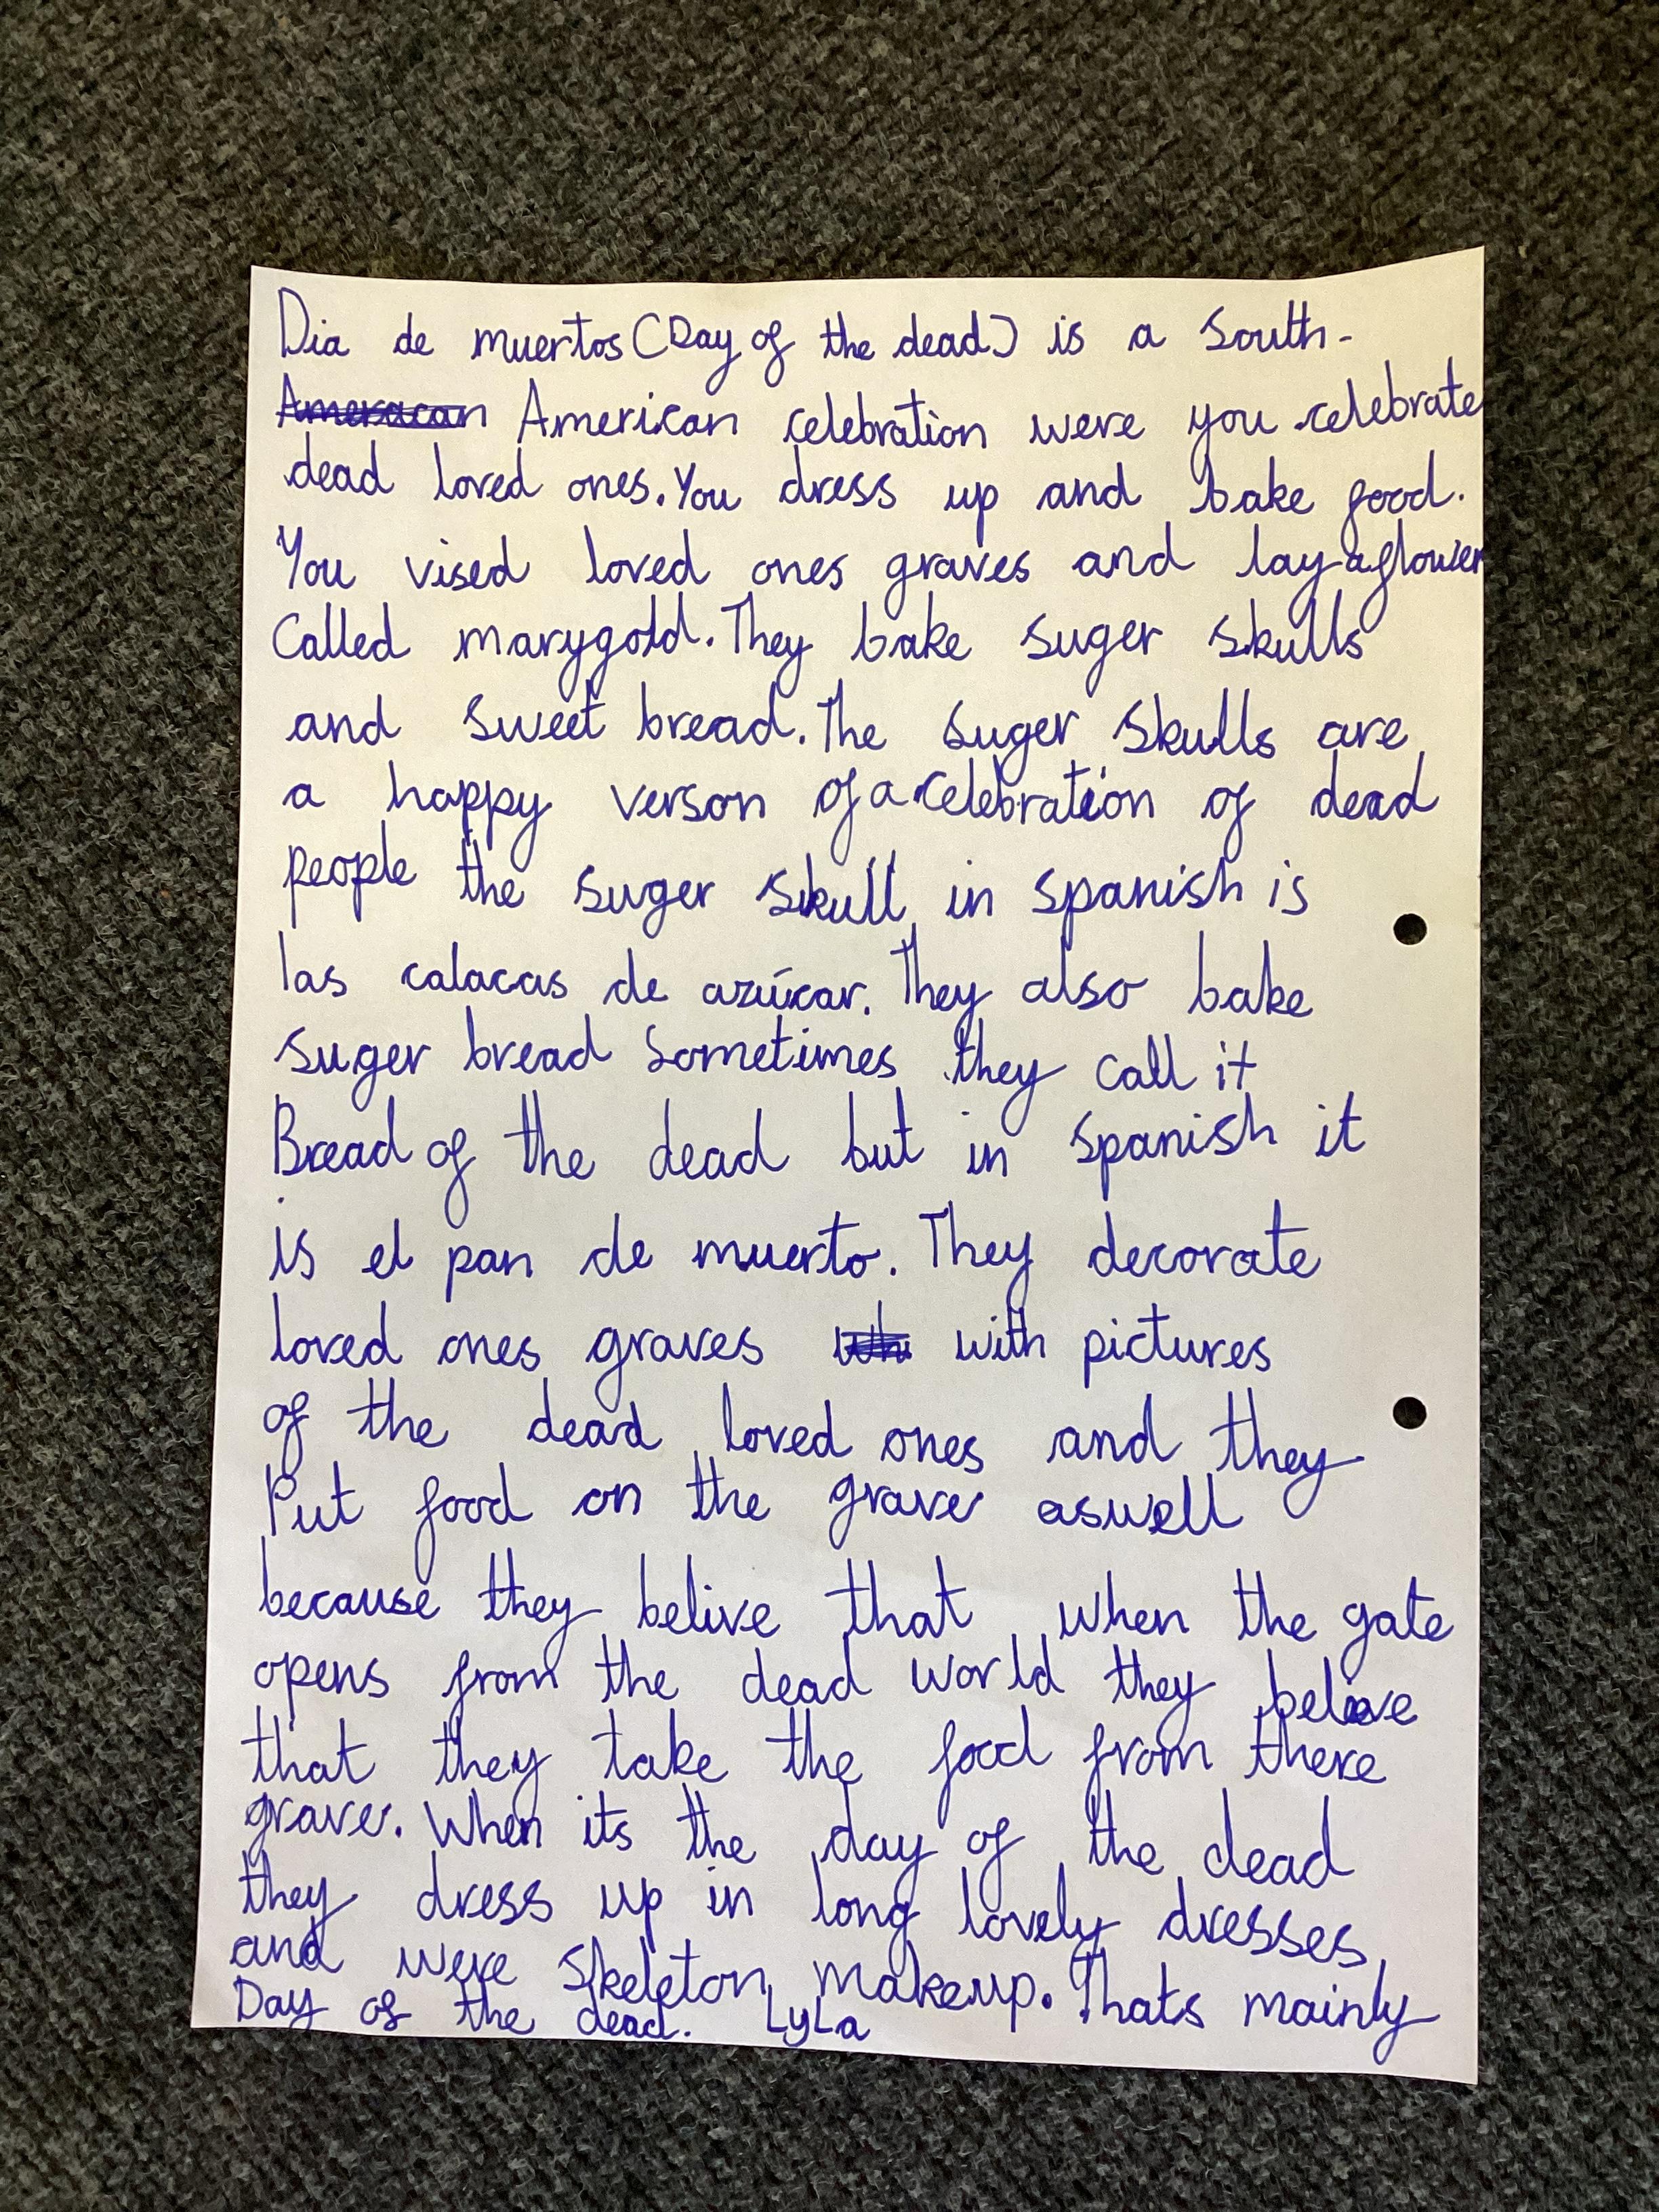 Dia de muertos (Day of the dead) is a South-
Ameracan American celebration were you celebrate
dead loved ones. You dress up and bake food.
You vised loved ones graves and lay a flower
Called marygold. They bake suger skulls
and sweet bread. The suger skulls are
a happy verson of a celebration of dead
people the suger skull in spanish is
las calacas de azúcar. They also bake
suger bread sometimes they call it
Bread of the dead but in spanish it
is el pan de muerto. They decorate
loved ones graves with pictures
of the dead loved ones and they
Put food on the grave aswell
because they belive that when the gate
opens from the dead world they beleve
that they take the food from there
grave. When its the day of the dead
they dress up in long lovely dresses
and were skeleton makeup. Thats mainly
Day of the dead. LyLa